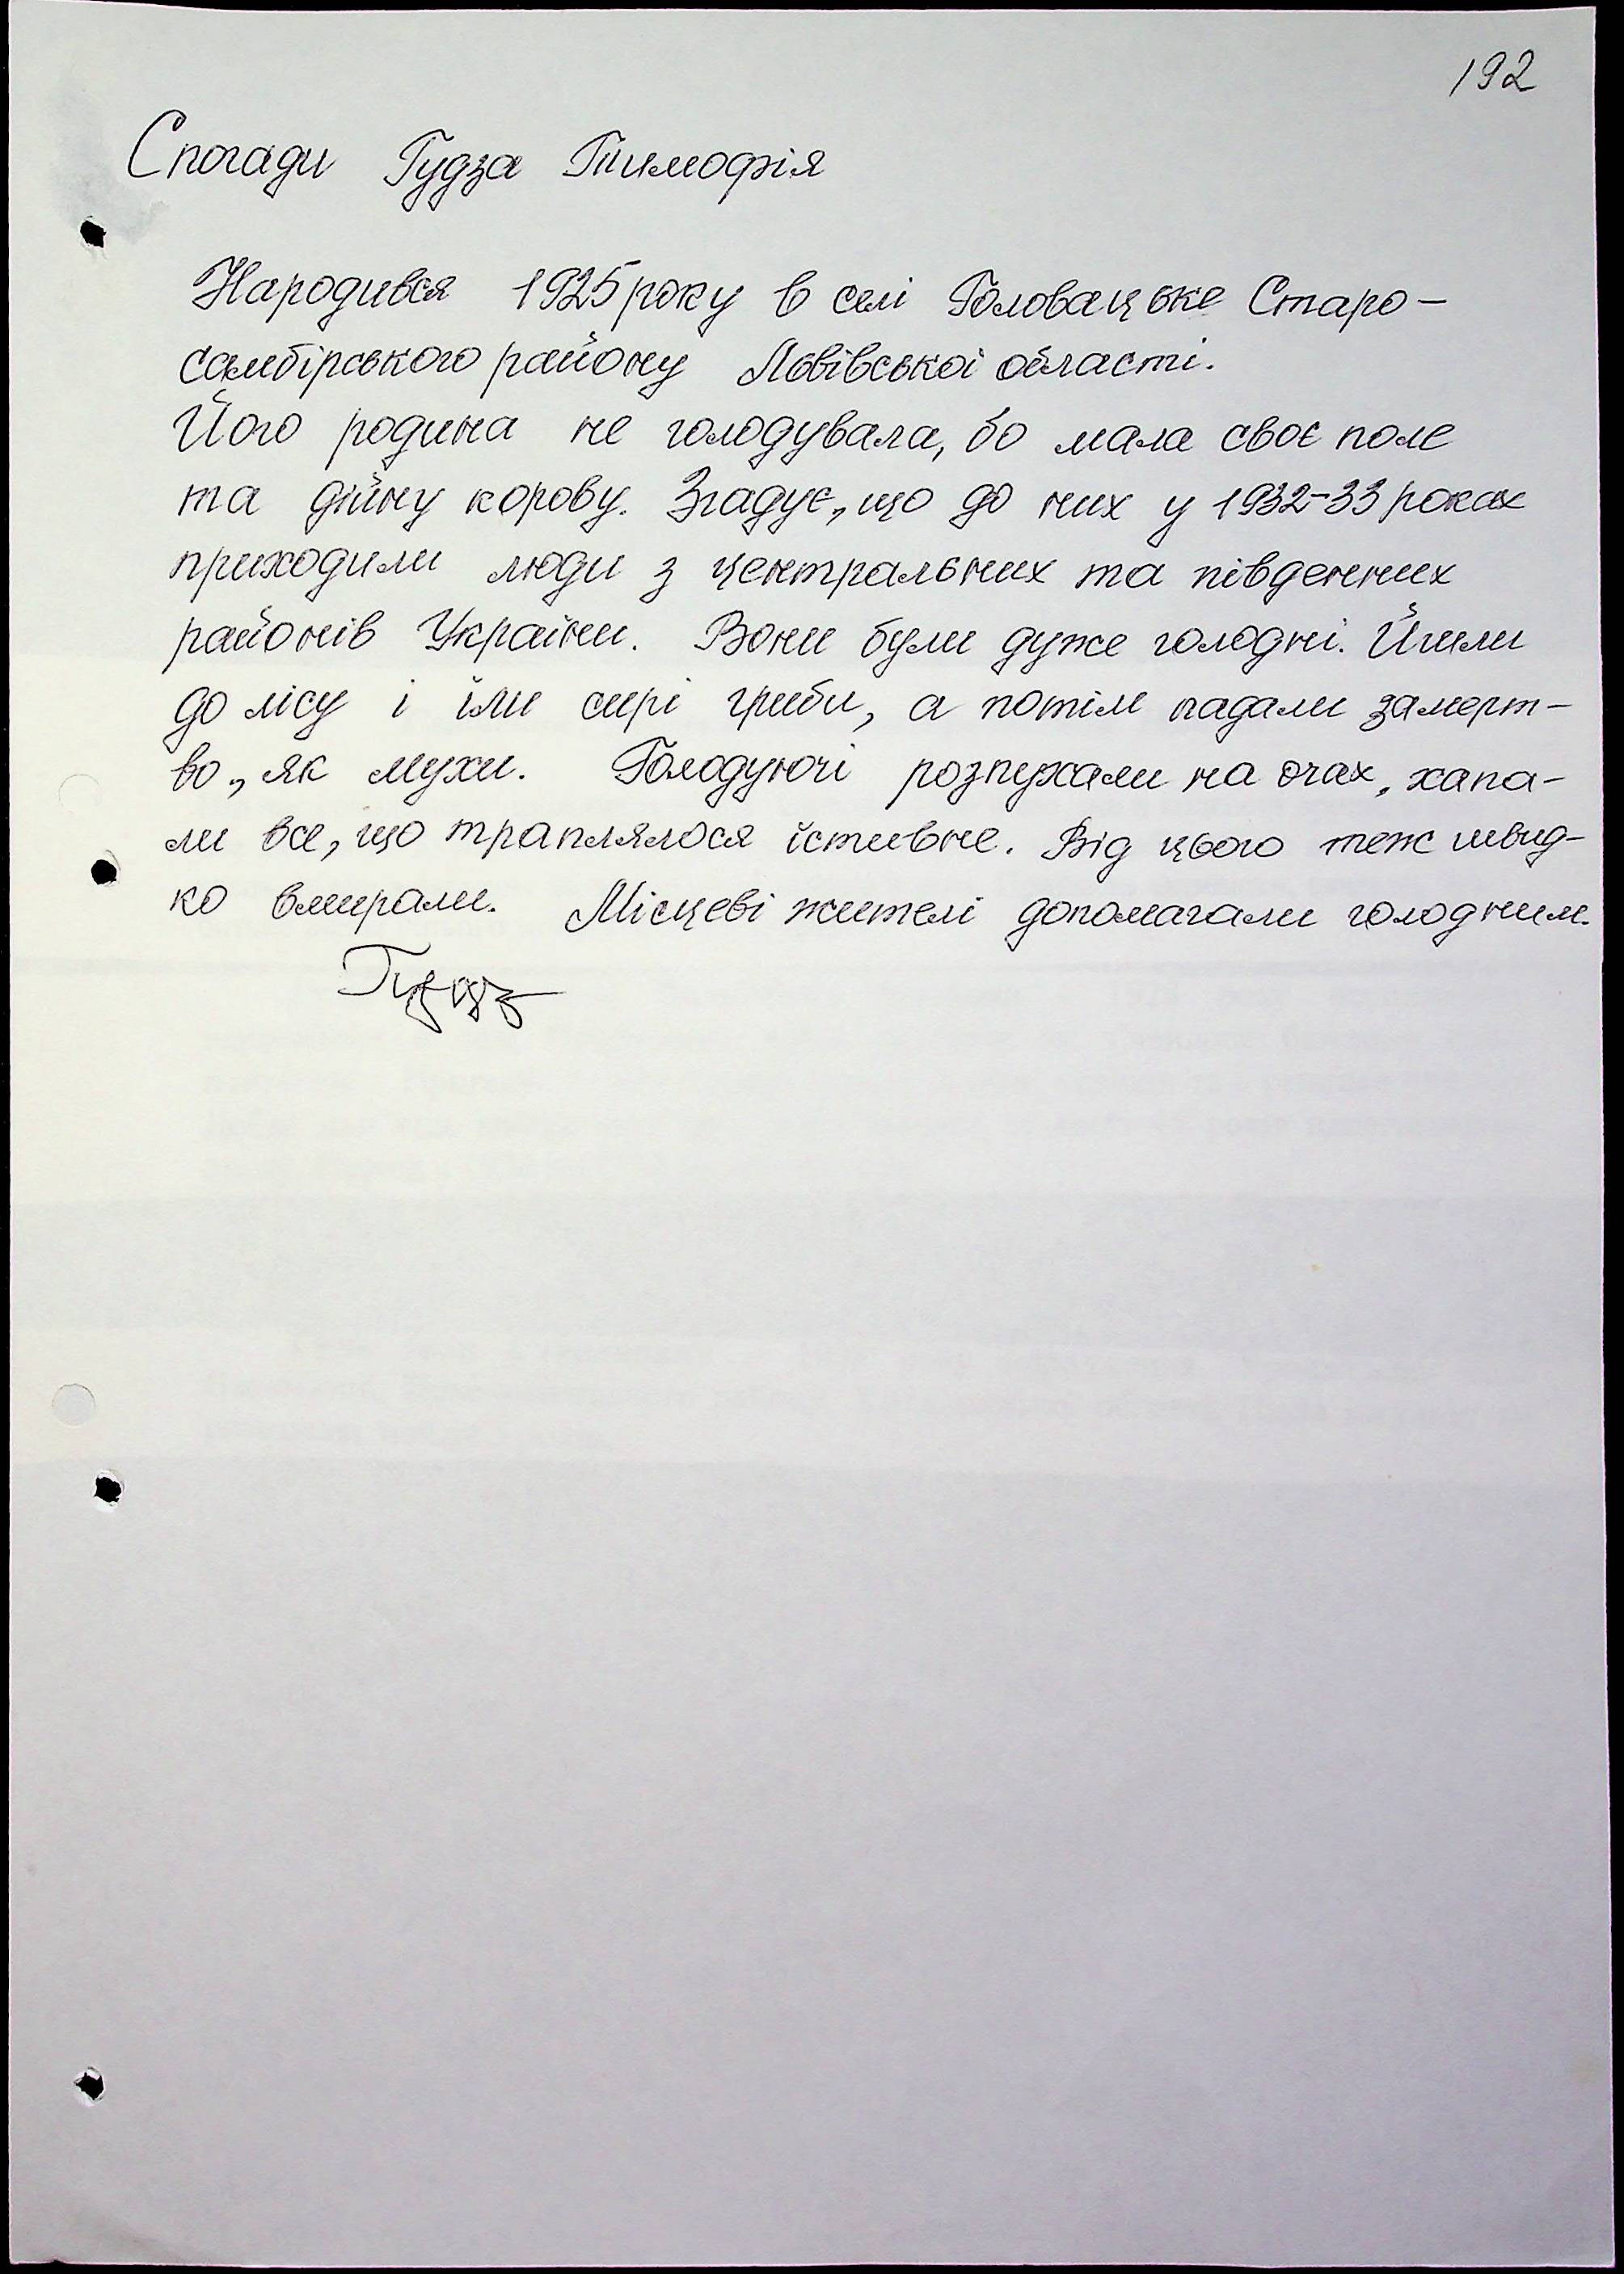 192
Спогади Гудза Тимофія
Народився 1925 року в селі Головацьке Старо-
самбірського району Львівської області.
Його родина не голодувала, бо мала своє поле
та дійну корову. Згадує, що до них у 1932-33 роках
приходили люди з центральних та південних
районів України. Вони були дуже голодні. Йшли
до лісу і їли сирі гриби, а потім падали замерт-
во, як мухи. Голодуючі розпухали на очах, хапа-
ли все, що траплялося їстивне. Від цього теж швид-
ко вмирали. Місцеві жителі допомагали голодним.
Гудз